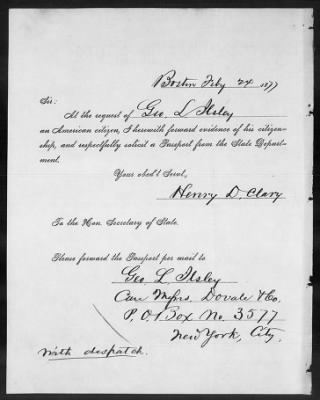 Boston Feby 24 1877
Sir:
At the request of Geo. L Ilsley
an American citizen, I herewith forward evidence of his citizen-
ship, and respectfully solicit a Passport from the State Depart-
ment.
Your obed't Serv't,
Henry D. Clary
To the Hon. Secretary of State.
Please forward the Passport per mail to
Geo. L. Ilsley
Care Messrs. Dovale & Co.
P. O. Box No. 3577
New York, City.
With despatch.